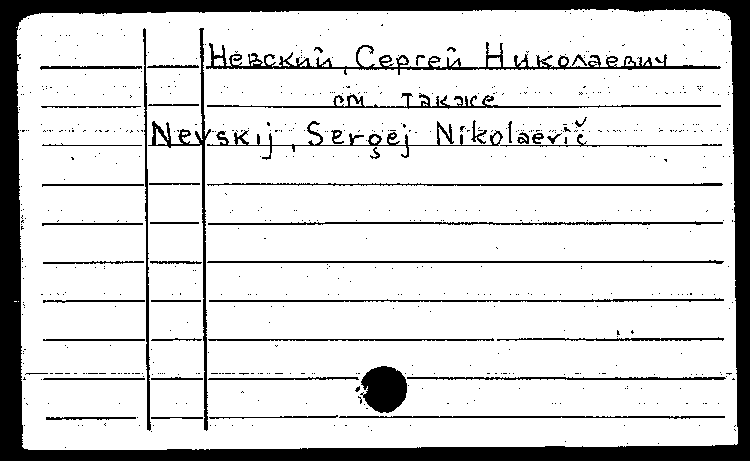 Невский, Сергей Николаевич
см. также
Nevskij, Sergej Nikolaevič